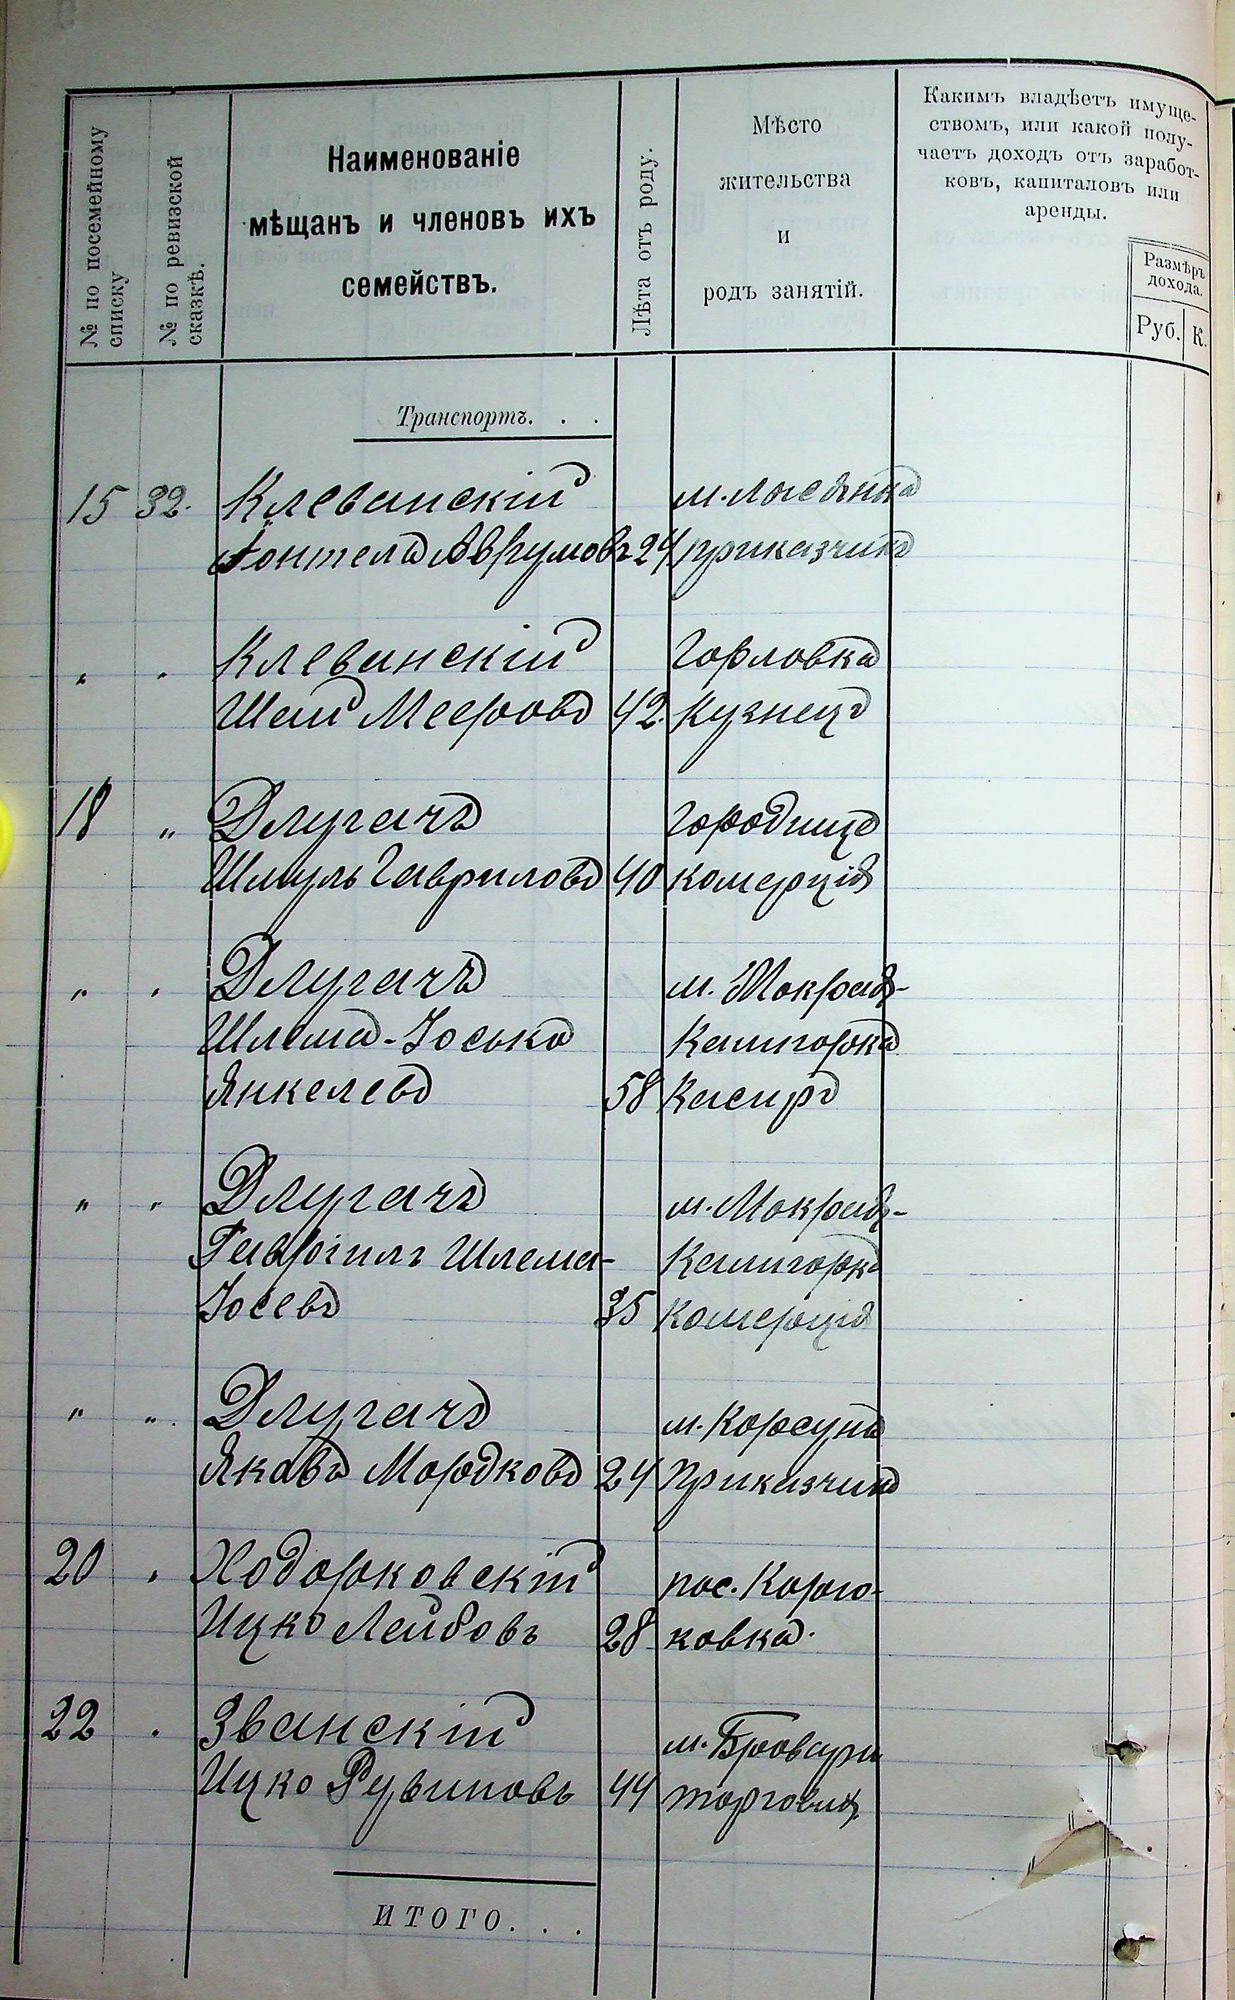 № по посемейному списку
№ по ревизской сказкѣ.
Наименованіе
мѣщанъ и членовъ ихъ
семействъ.
Лѣта отъ роду.
Мѣсто
жительства
и
родъ занятій.
Какимъ владѣетъ имуще-
ствомъ, или какой полу-
чаетъ доходъ отъ заработ-
ковъ, капиталовъ или
аренды.
Размѣръ
дохода.
Руб. К.
Транспортъ. . .
15 32. Клеванскій м. Лысянка
Аврумовъ 24 приказчикъ
„ „ Клеванскій Горловка
Шая Мееровъ 42. Кузнецъ
18 „ Длугачъ Городище
Шмуль Гавриловъ 40 Комерція
„ „ Длугачъ м. Мокрая-
Шлема-Іосько Калигорка
Янкелевъ 58 Касиръ
„ „ Длугачъ м. Мокрая-
Гавріилъ Шлема- Калигорка
Іосевъ 35 Комерція
„ „ Длугачъ м. Корсунь
Яковъ Мордковъ 24 Приказчикъ
20 „ Ходорковскій пос. Корю-
Ицко Лейбовъ 28 ковка.
22 „ Званскій м. Бровары
Ицко Рувиновъ 44 торговец
ИТОГО. . .